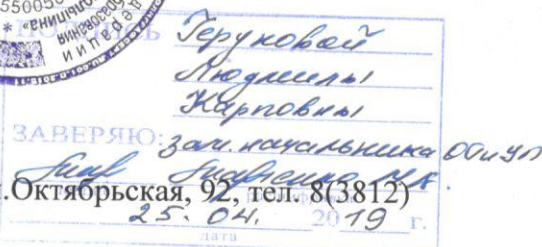 55005
ПОДПИСЬ Теруковой
Людмилы
Карповны
ЗАВЕРЯЮ: зам. начальника ООиУП
.Октябрьская, 92, тел. 8(3812)
25. 04. 2019 г.
дата